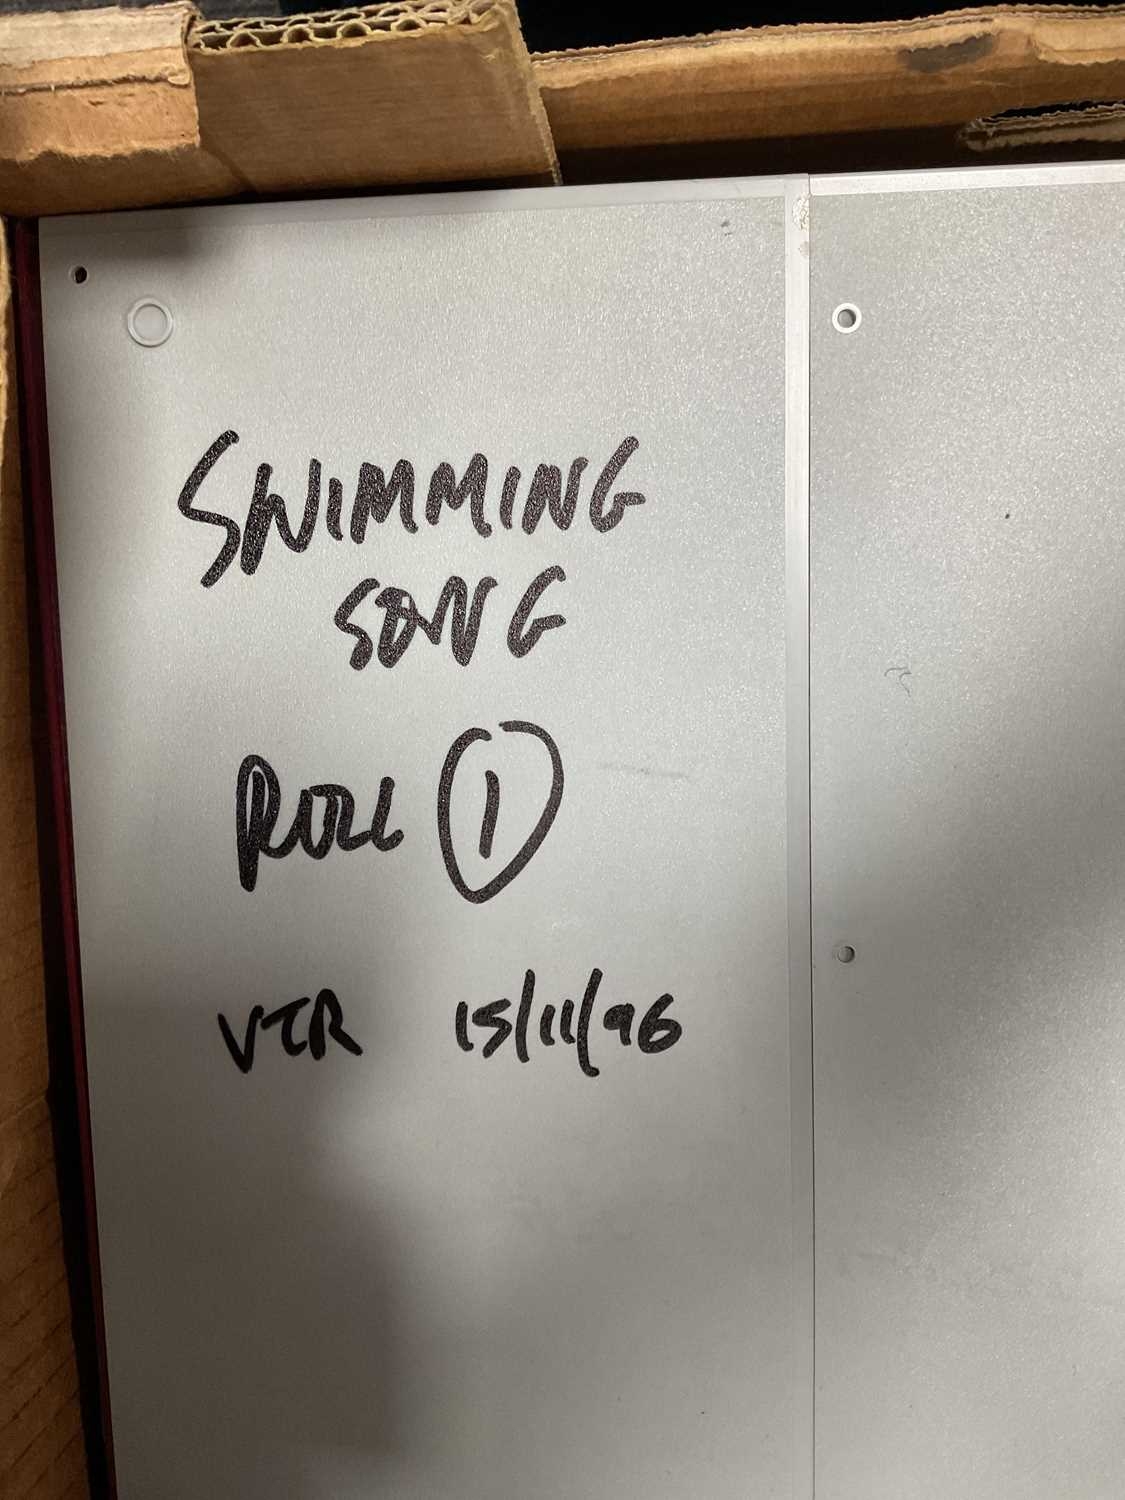 SWIMMING
SONG
ROLL 1
VTR 15/11/96